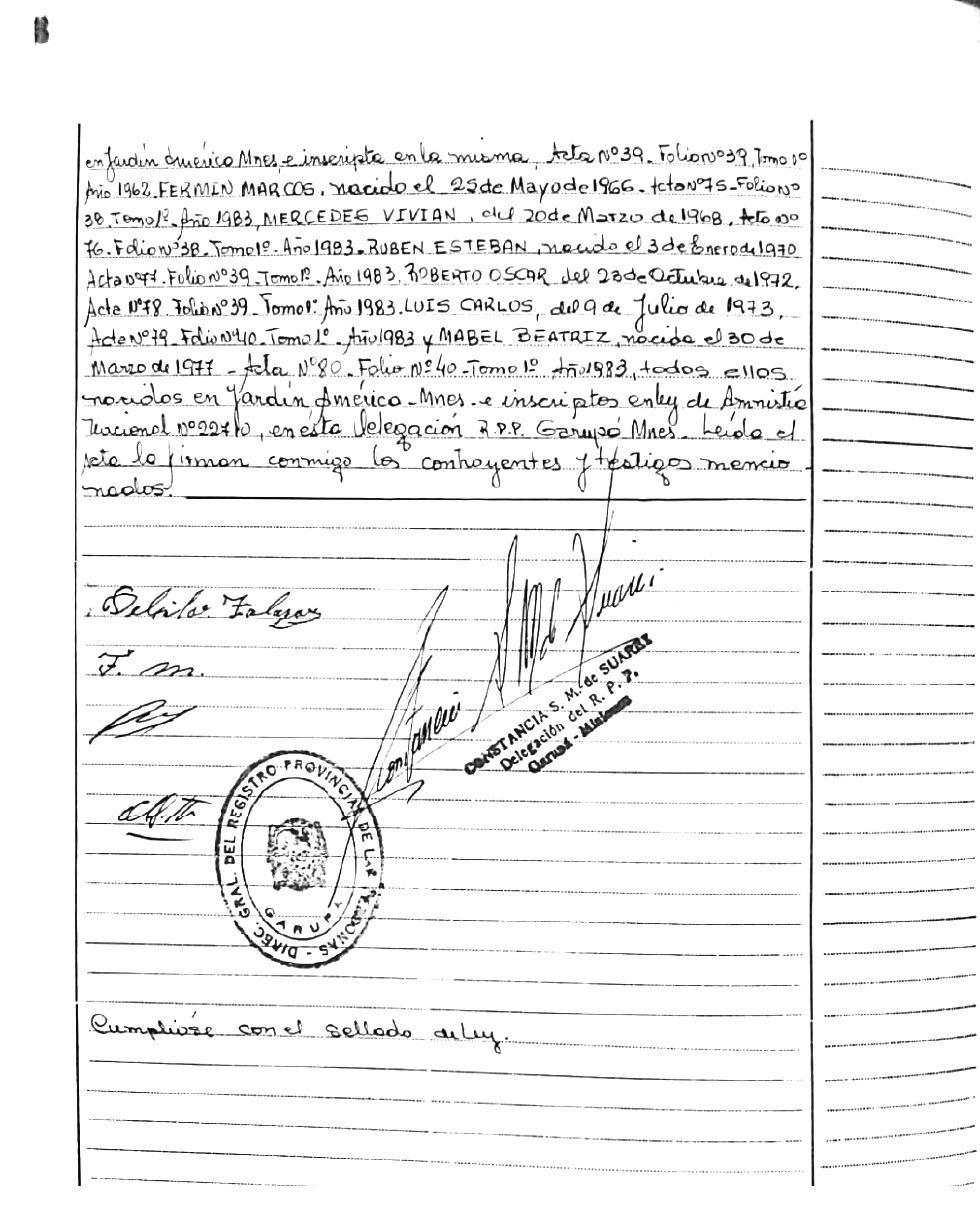 en Jardín América Mnes, e inscripta en la misma, Acta Nº39. Folio nº39, Tomo 1º
Año 1962, FERMIN MARCOS, nacido el 25 de Mayo de 1966. Acta nº75-Folio nº
38. Tomo 1º. Año 1983, MERCEDES VIVIAN, del 20 de Marzo de 1968, Acta nº
76. Folio nº38. Tomo 1º. Año 1983. RUBEN ESTEBAN, nacido el 3 de Enero de 1970
Acta nº77. Folio nº39. Tomo 1º. Año 1983, ROBERTO OSCAR del 23 de Octubre de 1972,
Acta Nº78 Folio nº39. Tomo 1º. Año 1983. LUIS CARLOS, del 9 de Julio de 1973,
Acta Nº79. Folio Nº40. Tomo 1º. Año 1983 y MABEL BEATRIZ, nacida el 30 de
Marzo de 1977 - Acta Nº80. Folio Nº40-Tomo 1º Año 1983, todos ellos
nacidos en Jardín América-Mnes-e inscriptos en ley de Amnistía
Nacional Nº22710, en ésta Delegación R.P.P. Garupá Mnes. Leída el
acta la firman conmigo los contrayentes y testigos mencio-
nados.
Salazar
F. m.
CONSTANCIA S. M. de SUAREZ
Delegación del R. P. P.
Garupá - Misiones
DIREC. GRAL. DEL REGISTRO PROVINCIAL DE LAS PERSONAS -
GARUPA
Cumplióse con el sellado de ley.